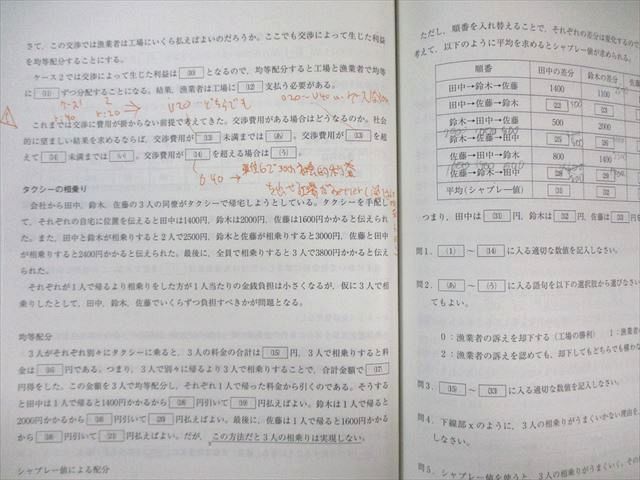 さて，この交渉では漁業者は工場にいくら払えばよいのだろうか。ここでも交渉によって生じた利益
を均等配分することにする。
ケース2では交渉によって生じた利益は (10) となるので，均等配分すると工場と漁業者で均等
に (11) ずつ分配することになる。結果，漁業者は工場に (12) 支払う必要がある。
これまでは交渉に費用が掛からない前提で考えてきた。交渉費用がある場合はどうなるのか。社会
的に望ましい結果を求めるならば，交渉費用が (13) 未満までは (あ) ，交渉費用が (13) を超
えて (14) 未満までは (い) 。交渉費用が (14) を超える場合は (う) 。
タクシーの相乗り
会社から田中，鈴木，佐藤の3人の同僚がタクシーで帰宅しようとしている。タクシーを手配し
て，それぞれの自宅に位置を伝えると田中は1400円，鈴木は2000円，佐藤は1600円かかると伝えられ
た。また，田中と鈴木が相乗りすると2人で2500円，鈴木と佐藤が相乗りすると3000円，佐藤と田中
が相乗りすると2400円かかると伝えられた。最後に，全員で相乗りすると3人で3800円かかると伝え
られた。
それぞれが1人で帰るより相乗りをした方が1人当たりの金銭負担は小さくなるが，仮に3人で相
乗りしたとして，田中，鈴木，佐藤でいくらずつ負担すべきかが問題となる。
均等配分
3人がそれぞれ別々にタクシーに乗ると，3人の料金の合計は (15) 円，3人で相乗りすると料
金は (16) 円である。つまり，3人で別々に帰るより3人で相乗りすることで，合計金額で (17)
円得をした。この金額を3人で均等配分し，それぞれ1人で帰った料金から引くのである。そうする
と田中は1人で帰ると1400円かかるから (18) 円引いて (19) 円払えばよい。鈴木は1人で帰ると
2000円かかるから (18) 円引いて (20) 円払えばよい。最後に，佐藤は1人で帰ると1600円かかる
から (18) 円引いて (21) 円払えばよい。だが，この方法だと3人の相乗りは実現しない。
シャプレー値による配分
ただし，順番を入れ替えることで，それぞれの差分は変化するので
考えて，以下のように平均を求めるとシャプレー値が求められる。
順番 田中の差分 鈴木の差分
田中→鈴木→佐藤 1400 1100
田中→佐藤→鈴木 (22) (23)
鈴木→田中→佐藤 500 2000
鈴木→佐藤→田中
佐藤→田中→鈴木 800 1400
佐藤→鈴木→田中 (28)
平均(シャプレー値) (31) (32)
つまり，田中は (31) 円，鈴木は (32) 円，佐藤は
問1． (1) ～ (14) に入る適切な数値を記入しなさい。
問2． (あ) ～ (う) に入る語句を以下の選択肢から選びなさい
てもよい。
0：漁業者の訴えを却下する（工場の勝利） 1：漁業者
2：漁業者の訴えを認めても，却下してもどちらでも構わな
問3． (15) ～ (33) に入る適切な数値を記入しなさい。
問4．下線部xのように，3人の相乗りがうまくいかない理由を，
しなさい。
問5．シャプレー値を使うと，3人の相乗りがうまくいく。その